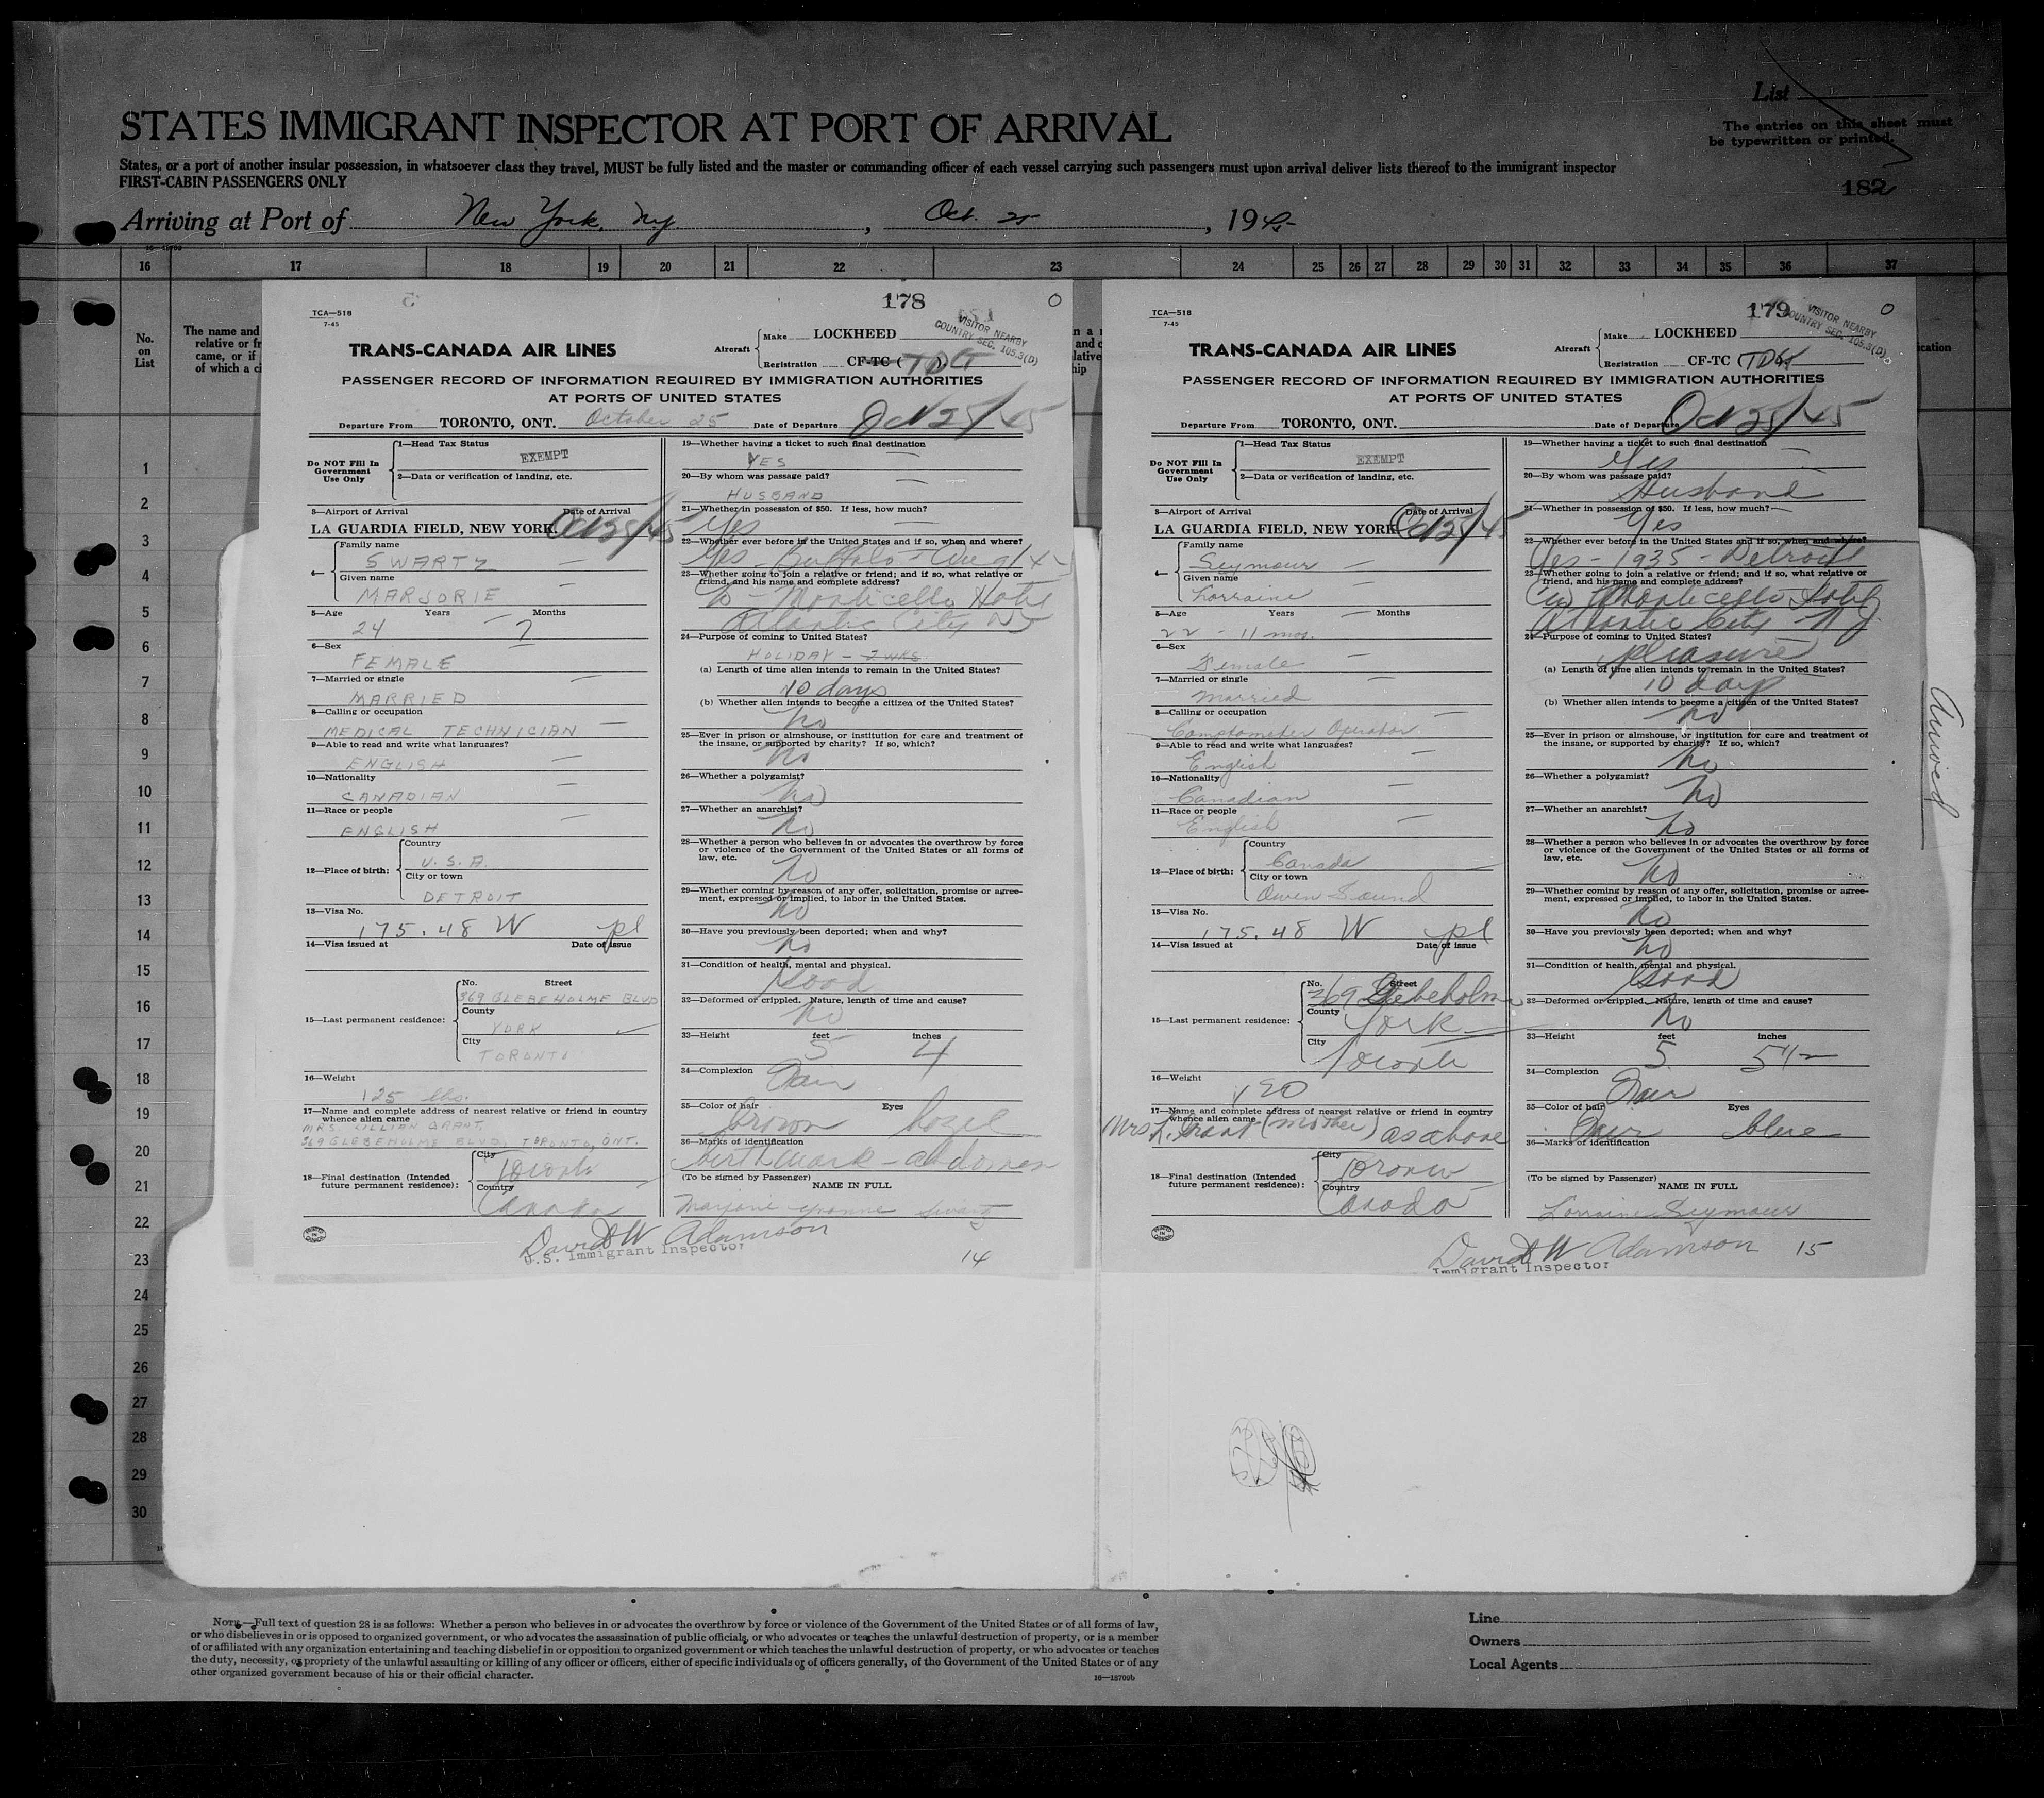 List
The entries on this sheet must
be typewritten or printed.
STATES IMMIGRANT INSPECTOR AT PORT OF ARRIVAL
States, or a port of another insular possession, in whatsoever class they travel, MUST be fully listed and the master or commanding officer of each vessel carrying such passengers must upon arrival deliver lists thereof to the immigrant inspector
FIRST-CABIN PASSENGERS ONLY
182
Arriving at Port of New York, N.Y., Oct. 25, 1945
16 17 18 19 20 21 22 23 24 25 26 27 28 29 30 31 32 33 34 35 36 37
No.
on
List
The name and
relative or fr
came, or if
of which a ci
1
2
3
4
5
6
7
8
9
10
11
12
13
14
15
16
17
18
19
20
21
22
23
24
25
26
27
28
29
30
178
TCA—518
7-45
TRANS-CANADA AIR LINES
Aircraft
Make LOCKHEED
Registration CF-TC (TDG)
VISITOR NEARBY
COUNTRY SEC. 105.3(D)
PASSENGER RECORD OF INFORMATION REQUIRED BY IMMIGRATION AUTHORITIES
AT PORTS OF UNITED STATES
Departure From TORONTO, ONT. October 25 Date of Departure Oct 25/45
Do NOT Fill In
Government
Use Only
1—Head Tax Status
EXEMPT
2—Data or verification of landing, etc.
3—Airport of Arrival Date of Arrival
LA GUARDIA FIELD, NEW YORK. Oct 25/45
4—
Family name
SWARTZ
Given name
MARJORIE
5—Age Years Months
24 7
6—Sex
FEMALE
7—Married or single
MARRIED
8—Calling or occupation
MEDICAL TECHNICIAN
9—Able to read and write what languages?
ENGLISH
10—Nationality
CANADIAN
11—Race or people
ENGLISH
12—Place of birth:
Country
U.S.A.
City or town
DETROIT
13—Visa No.
175.48 W pl
14—Visa issued at Date of issue
15—Last permanent residence:
No. Street
369 GLEBEHOLME BLVD
County
YORK
City
TORONTO
16—Weight
125 lbs.
17—Name and complete address of nearest relative or friend in country
whence alien came
MRS. LILLIAN GRANT,
369 GLEBEHOLME BLVD, TORONTO, ONT.
18—Final destination (Intended
future permanent residence):
City
Toronto
Country
Canada
19—Whether having a ticket to such final destination
YES
20—By whom was passage paid?
HUSBAND
21—Whether in possession of $50. If less, how much?
Yes
22—Whether ever before in the United States and if so, when and where?
Yes - Buffalo - Aug
23—Whether going to join a relative or friend; and if so, what relative or
friend, and his name and complete address?
Monticello Hotel
Atlantic City NJ
24—Purpose of coming to United States?
HOLIDAY - 2 WKS
(a) Length of time alien intends to remain in the United States?
10 days
(b) Whether alien intends to become a citizen of the United States?
no
25—Ever in prison or almshouse, or institution for care and treatment of
the insane, or supported by charity? If so, which?
no
26—Whether a polygamist?
no
27—Whether an anarchist?
no
28—Whether a person who believes in or advocates the overthrow by force
or violence of the Government of the United States or all forms of
law, etc.
no
29—Whether coming by reason of any offer, solicitation, promise or agree-
ment, expressed or implied, to labor in the United States.
no
30—Have you previously been deported; when and why?
no
31—Condition of health, mental and physical.
Good
32—Deformed or crippled. Nature, length of time and cause?
no
33—Height feet inches
5 4
34—Complexion
Fair
35—Color of hair Eyes
brown hazel
36—Marks of identification
birthmark - abdomen
(To be signed by Passenger)
NAME IN FULL
Marjorie Yvonne Swartz
David W Adamson
U.S. Immigrant Inspector
14
179
TCA—518
7-45
TRANS-CANADA AIR LINES
Aircraft
Make LOCKHEED
Registration CF-TC (TDG
VISITOR NEARBY
COUNTRY SEC. 105.3(D)
PASSENGER RECORD OF INFORMATION REQUIRED BY IMMIGRATION AUTHORITIES
AT PORTS OF UNITED STATES
Departure From TORONTO, ONT. Date of Departure Oct 25/45
Do NOT Fill In
Government
Use Only
1—Head Tax Status
EXEMPT
2—Data or verification of landing, etc.
3—Airport of Arrival Date of Arrival
LA GUARDIA FIELD, NEW YORK Oct 25/45
4—
Family name
Seymour
Given name
Lorraine
5—Age Years Months
22 - 11 mos.
6—Sex
Female
7—Married or single
Married
8—Calling or occupation
Comptometer Operator
9—Able to read and write what languages?
English
10—Nationality
Canadian
11—Race or people
English
12—Place of birth:
Country
Canada
City or town
Owen Sound
13—Visa No.
175.48 W pl
14—Visa issued at Date of issue
15—Last permanent residence:
No. Street
369 Glebeholm
County
York
City
Toronto
16—Weight
120
17—Name and complete address of nearest relative or friend in country
whence alien came
Mrs L. Grant (mother) as above
18—Final destination (Intended
future permanent residence):
City
Toronto
Country
Canada
19—Whether having a ticket to such final destination
Yes
20—By whom was passage paid?
Husband
21—Whether in possession of $50. If less, how much?
Yes
22—Whether ever before in the United States and if so, when and where?
Yes - 1935 - Detroit
23—Whether going to join a relative or friend; and if so, what relative or
friend, and his name and complete address?
Monticello Hotel
Atlantic City NJ
24—Purpose of coming to United States?
pleasure
(a) Length of time alien intends to remain in the United States?
10 days
(b) Whether alien intends to become a citizen of the United States?
no
25—Ever in prison or almshouse, or institution for care and treatment of
the insane, or supported by charity? If so, which?
no
26—Whether a polygamist?
no
27—Whether an anarchist?
no
28—Whether a person who believes in or advocates the overthrow by force
or violence of the Government of the United States or all forms of
law, etc.
no
29—Whether coming by reason of any offer, solicitation, promise or agree-
ment, expressed or implied, to labor in the United States.
no
30—Have you previously been deported; when and why?
no
31—Condition of health, mental and physical.
Good
32—Deformed or crippled. Nature, length of time and cause?
no
33—Height feet inches
5 5 1/2
34—Complexion
Fair
35—Color of hair Eyes
Fair blue
36—Marks of identification
(To be signed by Passenger)
NAME IN FULL
Lorraine Seymour
David W Adamson
Immigrant Inspector
15
Arrived
NOTE.—Full text of question 28 is as follows: Whether a person who believes in or advocates the overthrow by force or violence of the Government of the United States or of all forms of law,
or who disbelieves in or is opposed to organized government, or who advocates the assassination of public officials, or who advocates or teaches the unlawful destruction of property, or is a member
of or affiliated with any organization entertaining and teaching disbelief in or opposition to organized government or which teaches the unlawful destruction of property, or who advocates or teaches
the duty, necessity, or propriety of the unlawful assaulting or killing of any officer or officers, either of specific individuals or of officers generally, of the Government of the United States or of any
other organized government because of his or their official character.
16—18700b
Line
Owners
Local Agents